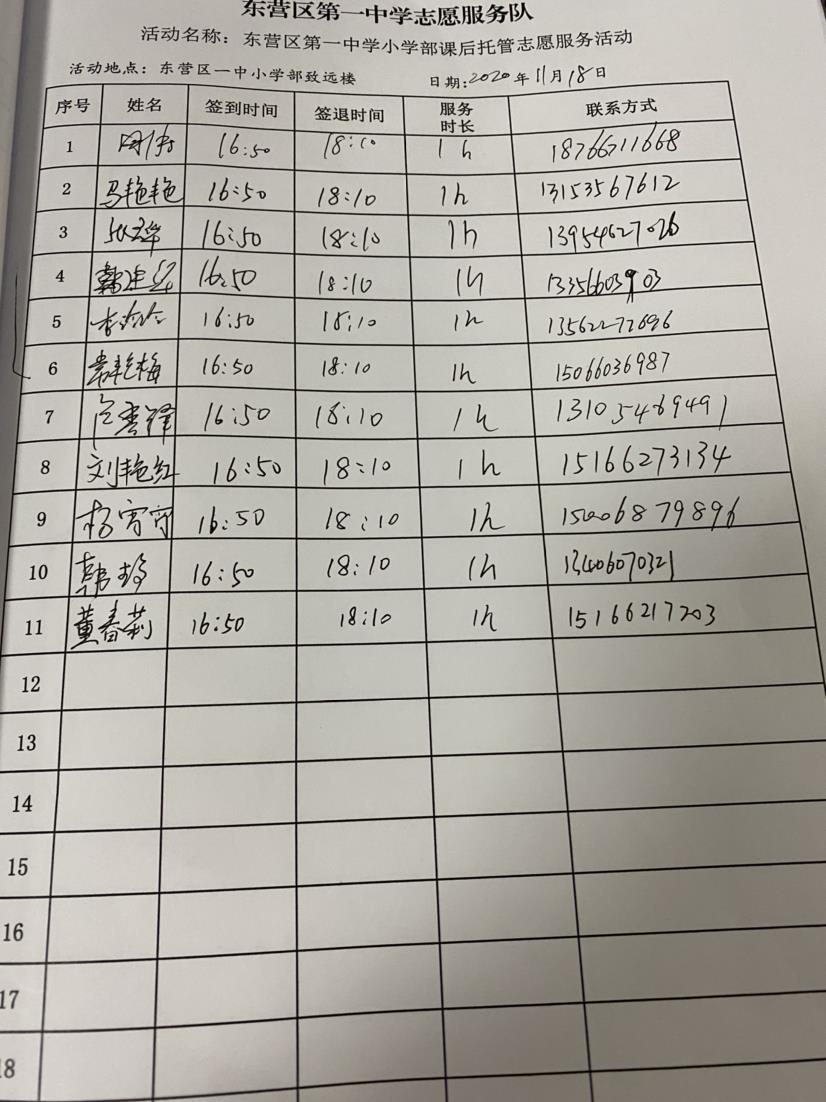 东营区第一中学志愿服务队
活动名称：东营区第一中学小学部课后托管志愿服务活动
活动地点：东营区一中小学部致远楼 日期:2020年11月18日
序号 姓名 签到时间 签退时间 服务时长 联系方式
1 16:50 18:10 1h 18766711668
2 马艳艳 16:50 18:10 1h 13153567612
3 16:50 18:10 1h 13954627026
4 16:50 18:10 1h 13356603903
5 16:50 18:10 1h
6 袁艳梅 16:50 18:10 1h 15066036987
7 16:50 18:10 1h 13105469491
8 刘艳红 16:50 18:10 1h 15166273134
9 杨 16:50 18:10 1h
10 韩 16:50 18:10 1h 13406070321
11 董春莉 16:50 18:10 1h 15166217203
12
13
14
15
16
17
18